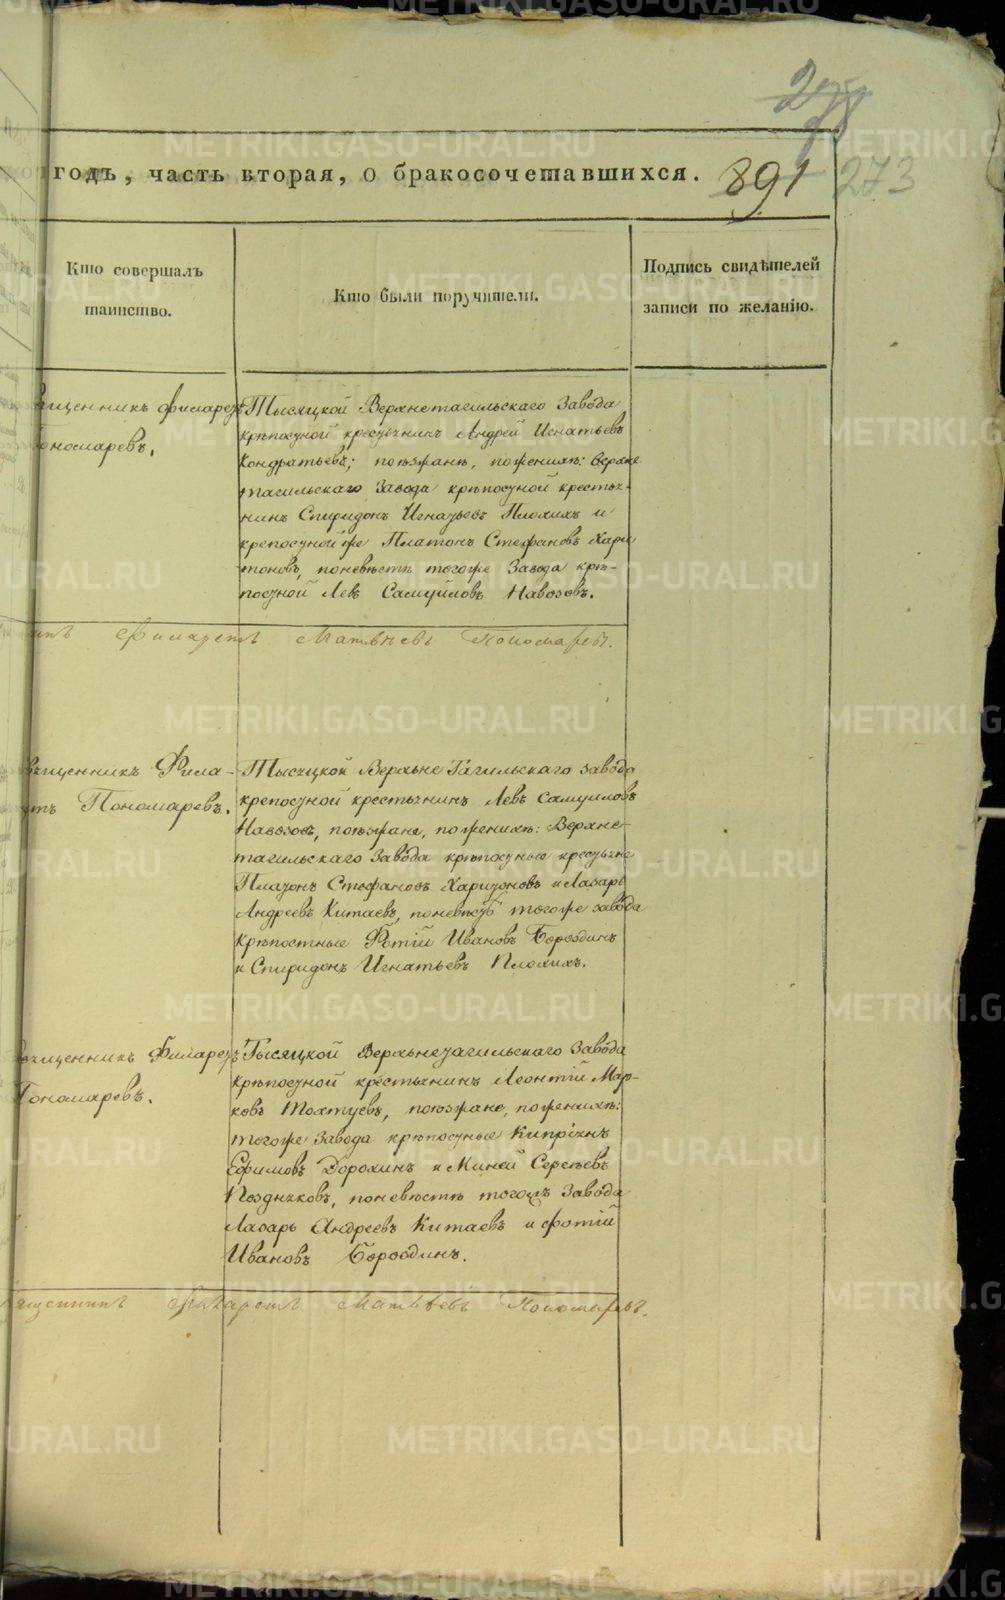 278
годъ, часть вторая, о бракосочетавшихся. 891 273
Кто совершалъ
таинство.
Кто были поручители.
Подпись свидѣтелей
записи по желанію.
щенникъ Филаретъ
ономаревъ.
Тысяцкой Верхнетагильскаго Завода
крѣпостной крестьянинъ Андрей Игнатьевъ
Кондратьевъ; поѣзжанѣ, поженихѣ: Верхне
тагильскаго Завода крѣпостной крестья-
нинъ Спиридонъ Игнатьевъ Плохихъ и
крепостной же Платонъ Стефановъ Хари
тоновъ, поневѣстѣ тогоже Завода крѣ-
постной Левъ Самуйловъ Навозовъ.
икъ Филаретъ Матвѣевъ Пономаревъ.
вященникъ Фила-
етъ Пономаревъ.
Тысяцкой Верхьне Тагильскаго завода
крепостной крестьянинъ Левъ Самуиловъ
Навозовъ, поѣзжане, поженихѣ: Верхне-
тагильскаго Завода крѣпостные крестьяне
Платонъ Стефановъ Харитоновъ и Лазарь
Андреевъ Китаевъ, поневѣстѣ тогоже завода
крѣпостные Фотій Ивановъ Бородинъ
и Спиридонъ Игнатьевъ Плохихъ.
вященникъ Филаретъ
Пономаревъ.
Тысяцкой Верхьнетагильскаго Завода
крѣпостной крестьянинъ Леонтій Мар-
ковъ Тохтуевъ, поѣзжане, поженихѣ:
тогоже Завода крѣпостные Кипріянъ
Ефимовъ Дорохинъ и Миней Сергѣевъ
Поздняковъ, поневѣстѣ тогожъ Завода
Лазарь Андреевъ Китаевъ и Фотій
Ивановъ Бородинъ.
ященникъ Филаретъ Матвѣевъ Пономаревъ.
METRIKI.GASO-URAL.RU